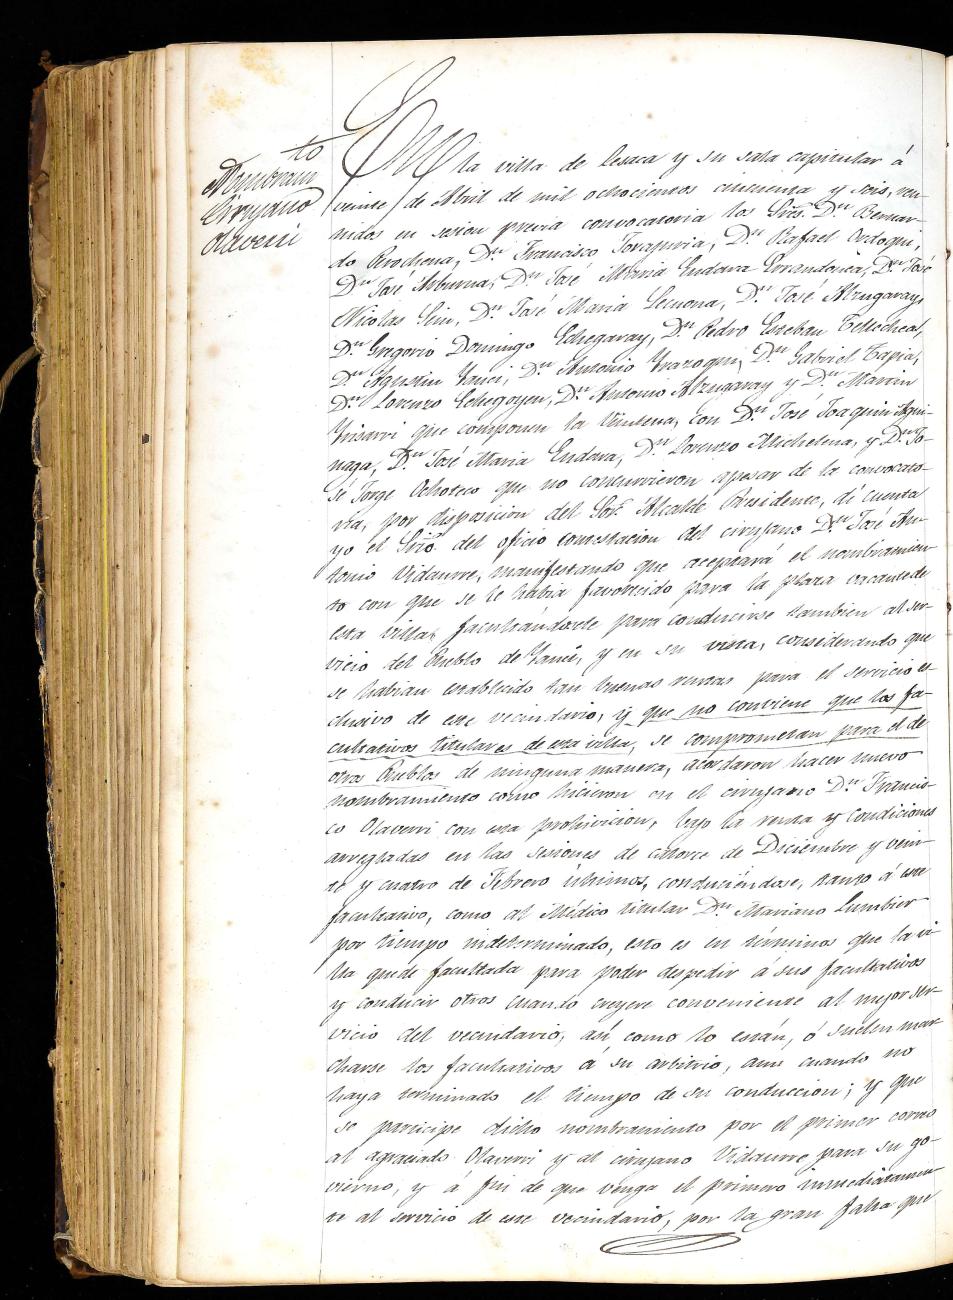 Nombram.to
Cirujano
Olaverri
En la villa de Lesaca y su sala capitular á
veinte de Abril de mil ochocientos cincuenta y seis, reu-
nidos en sesion previa convocatoria los Sres. D.n Bernar-
do Perochena, D.n Francisco Torajuria, D.n Rafael Ordoqui,
D.n José Alburna, D.n José Maria Endara Errandonea, D.n José
Nicolas Sein, D.n José Maria Lecuona, D.n José Alzugaray,
D.n Gregorio Domingo Echegaray, D.n Pedro Esteban Tellechea,
D.n Agustin Yanci, D.n Antonio Yrazoqui, D.n Gabriel Tapia,
D.n Lorenzo Echegoyen, D.n Antonio Alzugaray y D.n Martin
Yrisarri que componen la Veintena, con D.n José Joaquin Agui-
naga, D.n José Maria Endara, D.n Lorenzo Michelena, y D.n Jo-
sé Jorge Ochoteco que no concurrieron apesar de la convocato-
ria, por disposicion del Sor. Alcalde Presidente, dí cuenta
yo el Srio. del oficio contestacion del cirujano D.n José An-
tonio Vidaurre, manifestando que aceptará el nombramien-
to con que se le habia favorecido para la plaza vacante de
esta villa, facultándosele para conducirse tambien al ser-
vicio del Pueblo de Yanci, y en su vista, considerando que
se habian establecido tan buenas rentas para el servicio es-
clusivo de este vecindario, y que no conviene que los fa-
cultativos titulares de esta villa, se comprometan para el de
otros Pueblos de ninguna manera, acordaron hacer nuevo
nombramiento como hicieron en el cirujano D.n Francis-
co Olaverri con esta prohivicion, bajo la renta y condiciones
arregladas en las sesiones de catorce de Diciembre y vein-
te y cuatro de Febrero últimos, conduciéndose, tanto á este
facultativo, como al Médico titular D.n Mariano Lumbier
por tiempo indeterminado, esto es en términos que la vi-
lla quede facultada para poder despedir á sus facultativos
y conducir otros cuando creyere conveniente al mejor ser-
vicio del vecindario, así como lo están, ó suelen mar-
charse los facultativos á su arbitrio, aun cuando no
haya terminado el tiempo de su conduccion; y que
se participe dicho nombramiento por el primer correo
al agraciado Olaverri y al cirujano Vidaurre para su go-
vierno, y á fin de que venga el primero inmediatamen-
te al servicio de este vecindario, por la gran falta que